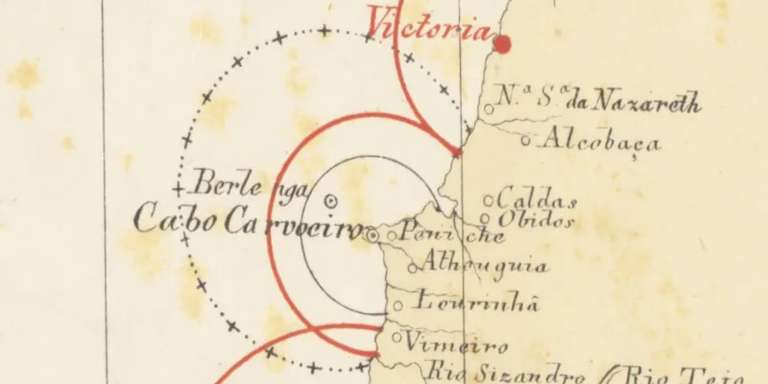 Victoria
N.ª S.ª da Nazareth
Alcobaça
Berlenga
Caldas
Obidos
Cabo Carvoeiro
Peniche
Athouguia
Lourinhã
Vimeiro
Rio Sizandro
Rio Tejo